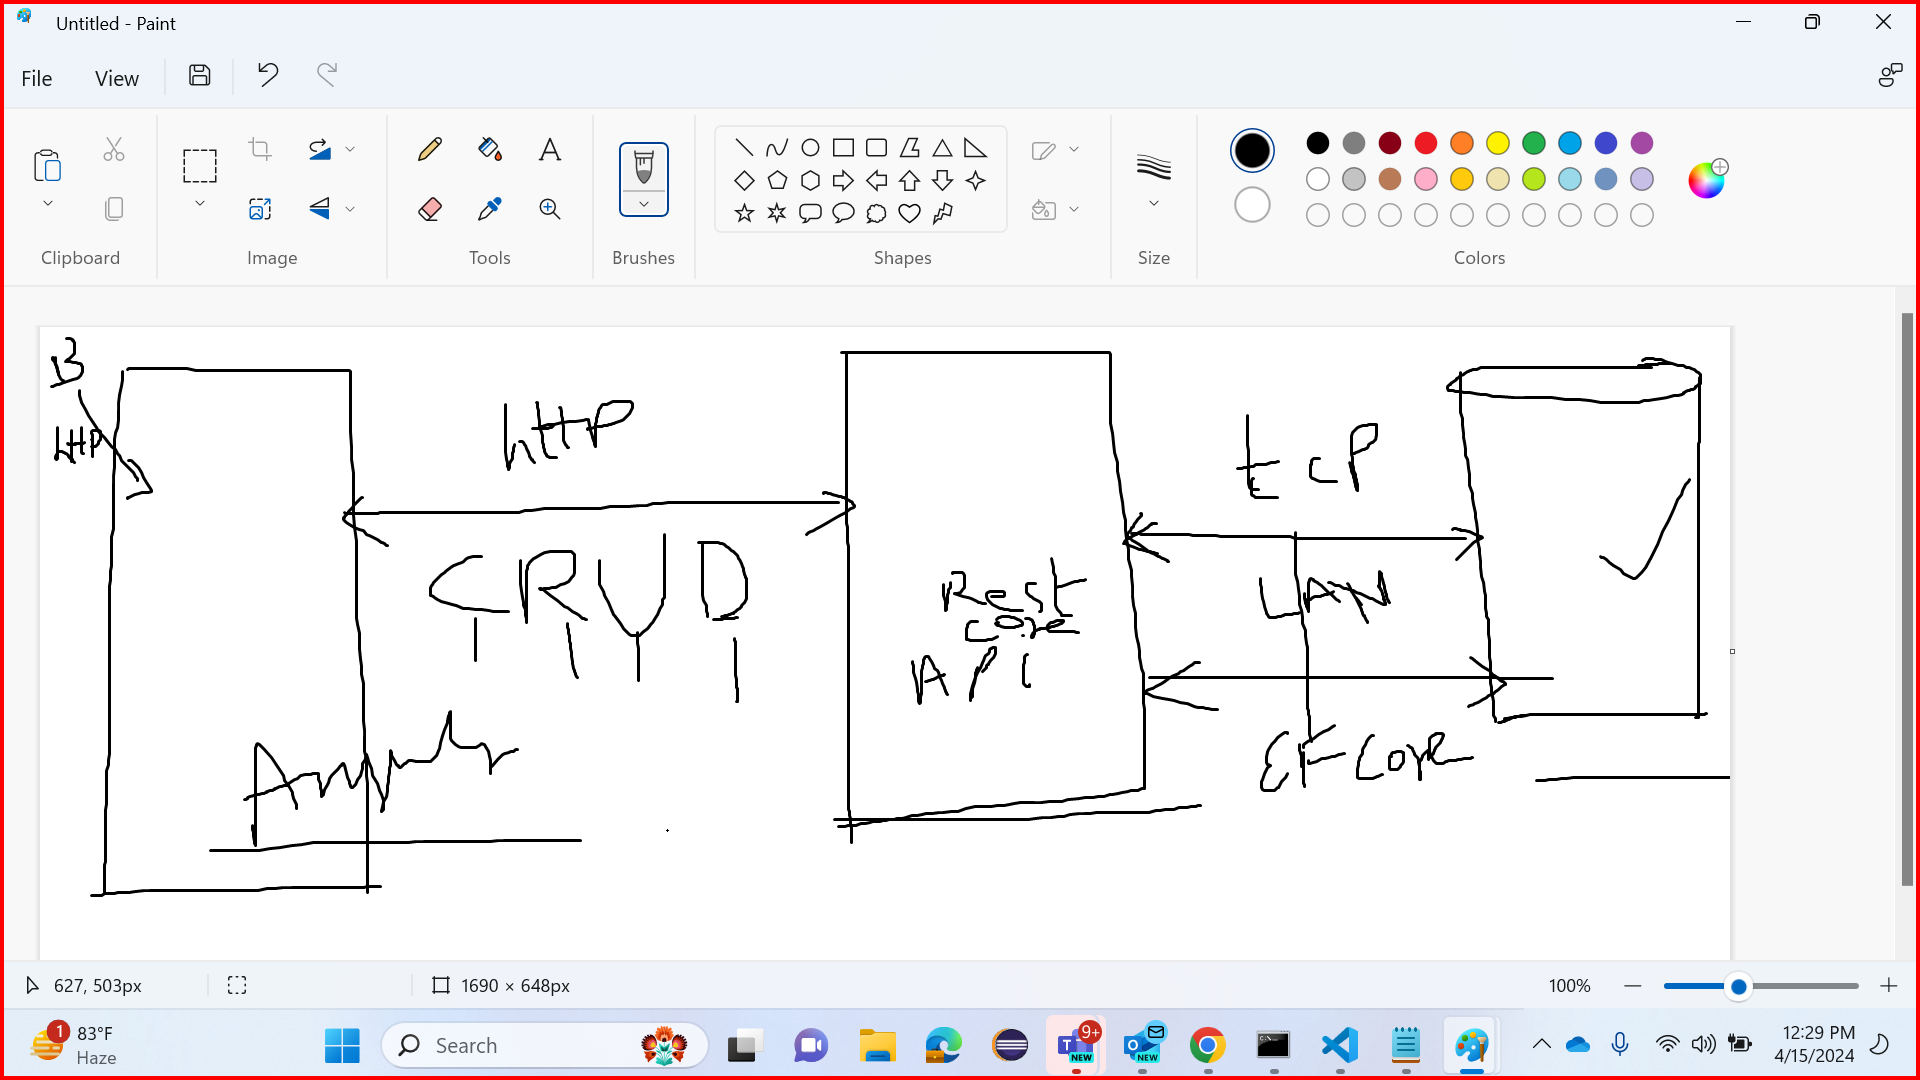 Untitled - Paint
File
View
Clipboard
Image
Tools
Brushes
Shapes
Size
Colors
B
http
tcP
CRUD
Rest
core
API
LAN
EF Core
627, 503px
1690 × 648px
100%
1
83°F
Haze
Search
9+
NEW
NEW
12:29 PM
4/15/2024